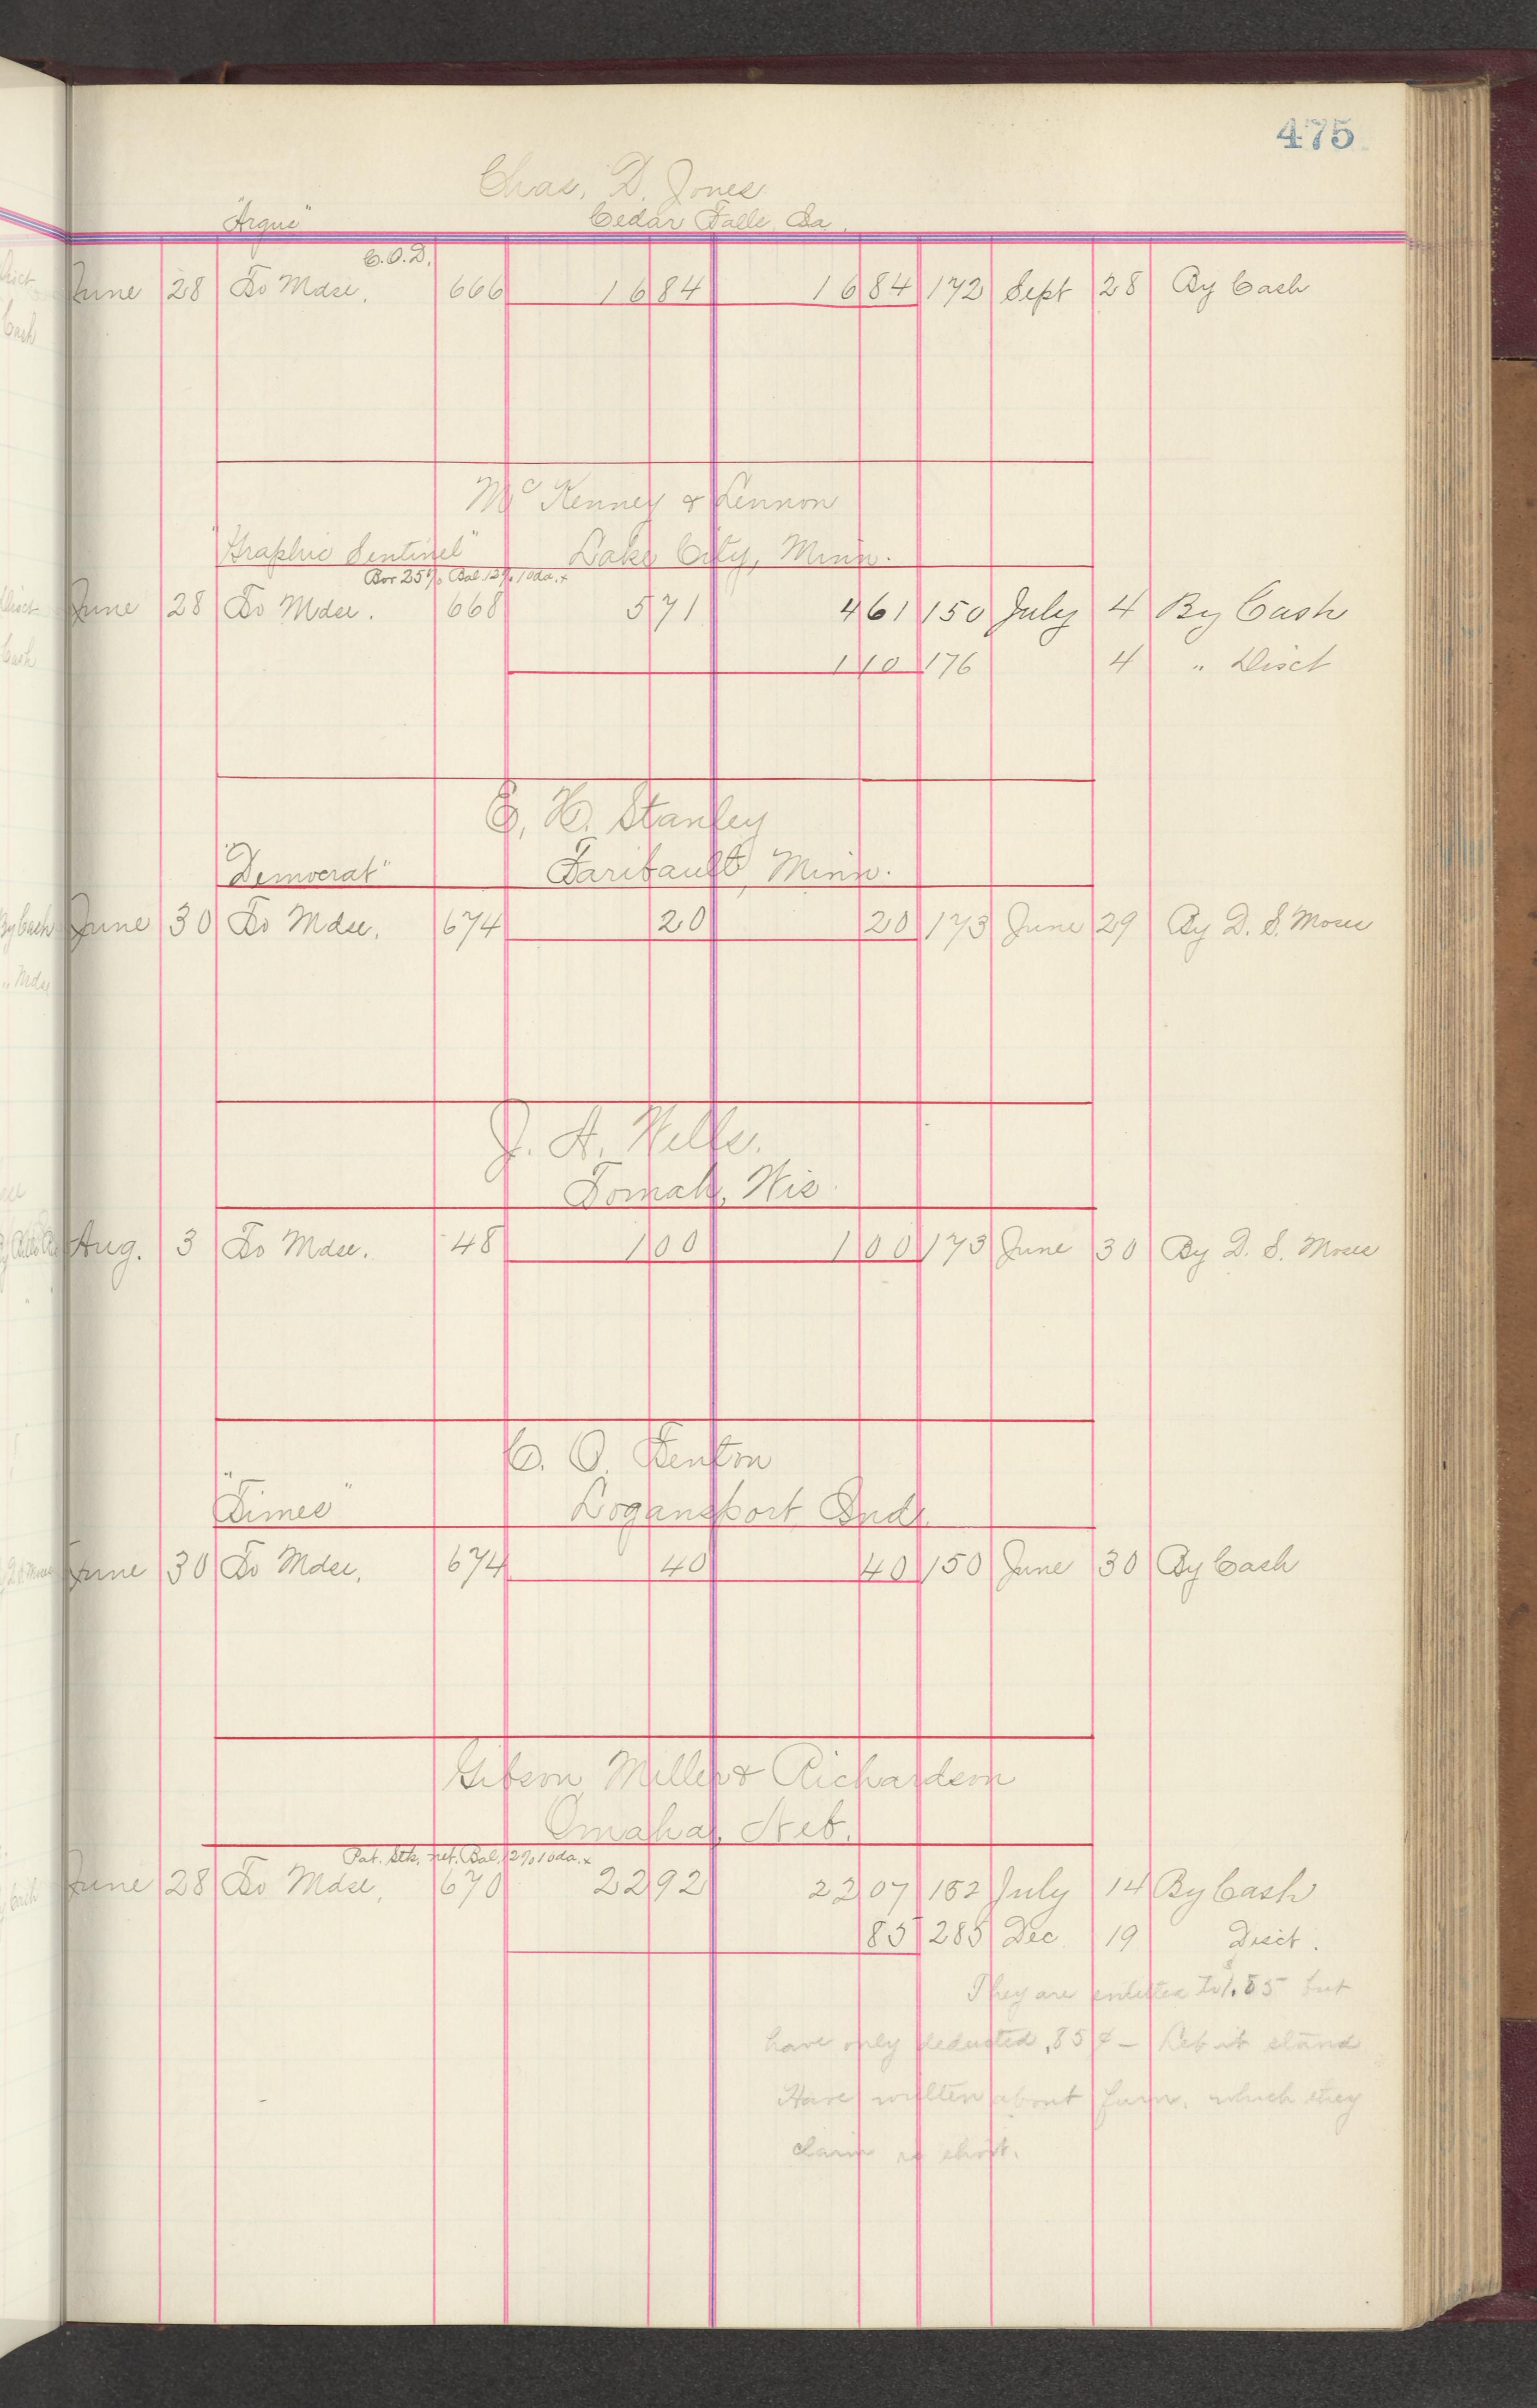 475
Chas. D. Jones
"Argus" Cedar Falls, Ia.
C.O.D.
June 28 To Mdse. 666 16 84 16 84 172 Sept 28 By Cash
Mc Kenney & Lennon
"Graphic Sentinel" Lake City, Minn.
Bor 25% Bal. 2% 10 da. x
June 28 To Mdse. 668 5 71 4 61 150 July 4 By Cash
1 10 176 4 " Disct
E. H. Stanley
"Democrat" Faribault, Minn.
June 30 To Mdse. 674 20 20 173 June 29 By D. S. Mose
J. A. Wells.
Tomah, Wis.
Aug. 3 To Mdse. 48 1 00 1 00 173 June 30 By D. S. Mose
C. O. Fenton
"Times" Logansport Ind.
June 30 To Mdse. 674 40 40 150 June 30 By Cash
Gibson Miller & Richardson
Omaha, Neb.
Pat. Stk. net. Bal. 2% 10 da. x
June 28 To Mdse, 670 22 92 22 07 152 July 14 By Cash
85 285 Dec 19 Disct.
They are entitled to $1.85 but
have only deducted .85 ¢ – Let it stand
Have written about furn. which they
claim is short.